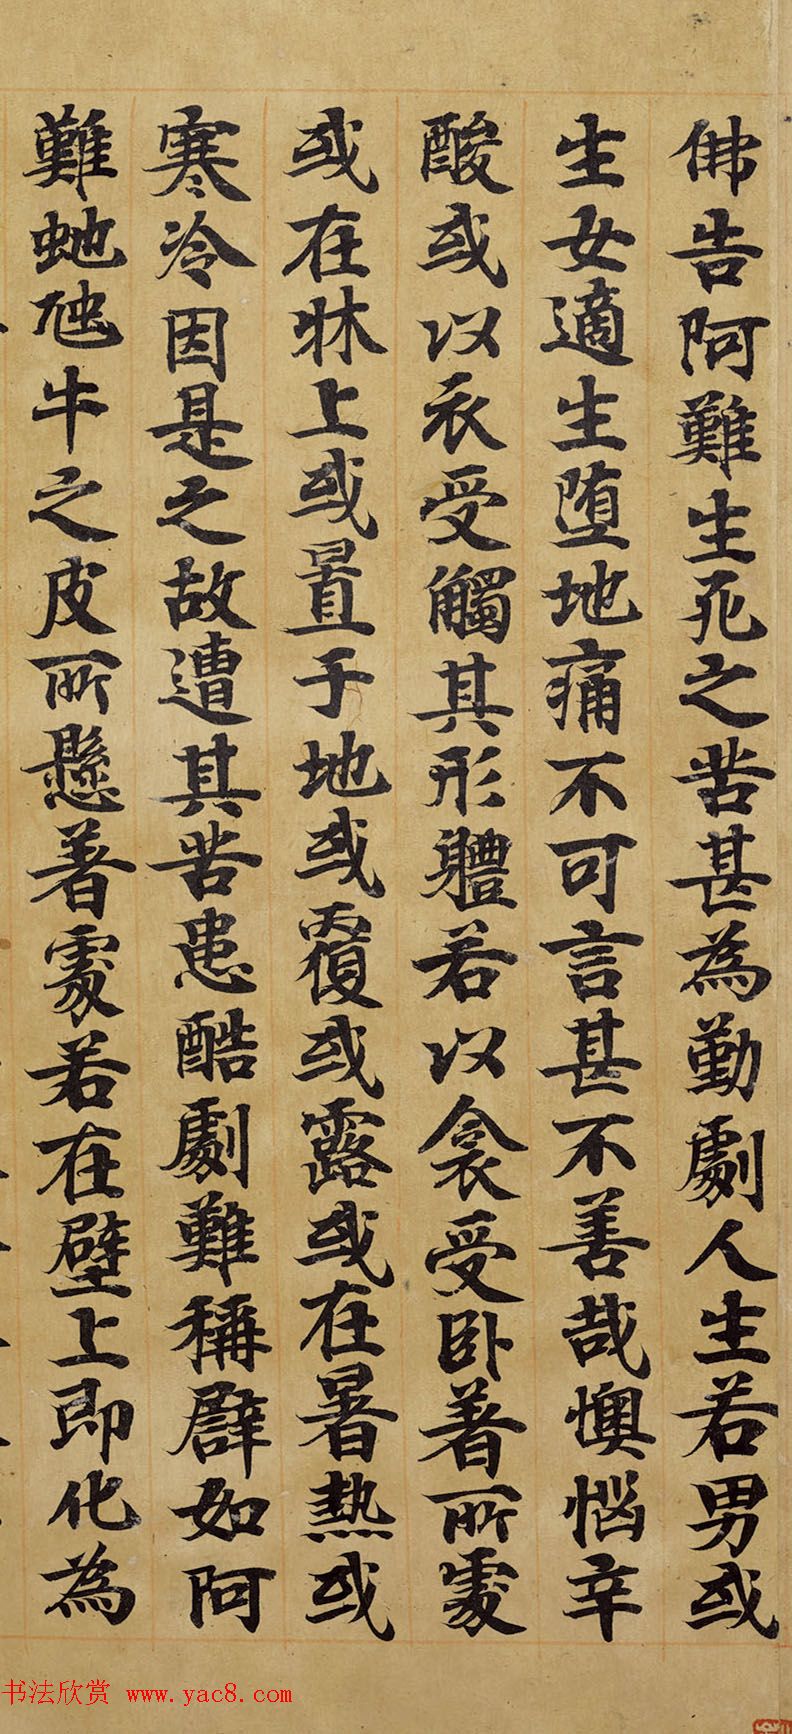 佛告阿難生死之苦甚為勤劇人生若男或
生女適生墮地痛不可言甚不善哉懊惱辛
酸或以衣受觸其形軆若以衾受卧著所處
或在牀上或置于地或覆或露或在暑熱或
寒冷因是之故遭其苦患酷劇難稱譬如阿
難虵虺牛之皮所懸著處若在壁上即化為
书法欣赏 www.yac8.com